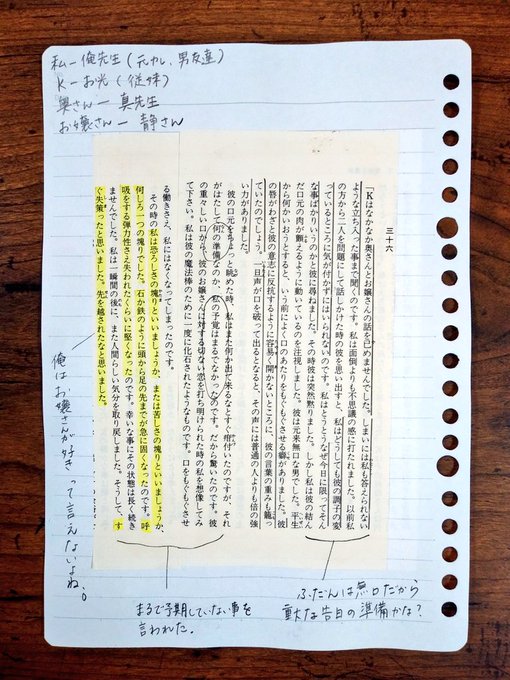 私―俺先生(元カレ、男友達)
K―お光(従妹)
奥さん―真先生
お嬢さん―静さん
三十六
「Kはなかなか奥さんとお嬢さんの話を已めませんでした。しまいには私も答えられない
ような立ち入った事まで聞くのです。私は面倒よりも不思議の感に打たれました。以前私
の方から二人を問題にして話しかけた時の彼を思い出すと、私はどうしても彼の調子の変
っているところに気が付かずにはいられないのです。私はとうとうなぜ今日に限ってそん
な事ばかりいうのかと彼に尋ねました。その時彼は突然黙りました。しかし私は彼の結ん
だ口元の肉が顫えるように動いているのを注視しました。彼は元来無口な男でした。平生
から何かいおうとすると、いう前によく口のあたりをもぐもぐさせる癖がありました。彼
の唇がわざと彼の意志に反抗するように容易く開かないところに、彼の言葉の重みも籠っ
ていたのでしょう。一旦声が口を破って出るとなると、その声には普通の人よりも倍の強
い力がありました。
彼の口元をちょっと眺めた時、私はまた何か出て来るなとすぐ疳付いたのですが、それ
がはたして何の準備なのか、私の予覚はまるでなかったのです。だから驚いたのです。彼
の重々しい口から、彼のお嬢さんに対する切ない恋を打ち明けられた時の私を想像してみ
て下さい。私は彼の魔法棒のために一度に化石されたようなものです。口をもぐもぐさせ
る働きさえ、私にはなくなってしまったのです。
その時の私は恐ろしさの塊りといいましょうか、または苦しさの塊りといいましょうか、
何しろ一つの塊りでした。石か鉄のように頭から足の先までが急に固くなったのです。呼
吸をする弾力性さえ失われたくらいに堅くなったのです。幸いな事にその状態は長く続き
ませんでした。私は一瞬間の後に、また人間らしい気分を取り戻しました。そうして、す
ぐ失策ったと思いました。先を越されたなと思いました。
ふだんは無口だから
重大な告白の準備かな?
まるで予期していない事を
言われた.
俺はお嬢さんが好きって言えないよね。